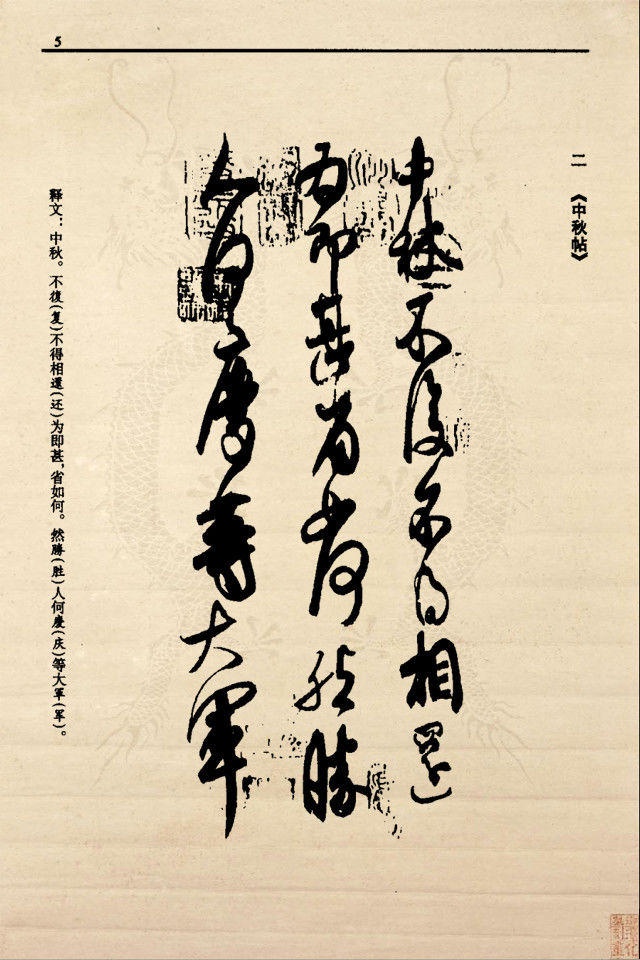 5
二 《中秋帖》
中秋不復不得相還
为即甚省如何然勝
人何慶等大軍
释文：中秋。不復(复)不得相還(还)为即甚，省如何。然勝(胜)人何慶(庆)等大軍(军)。